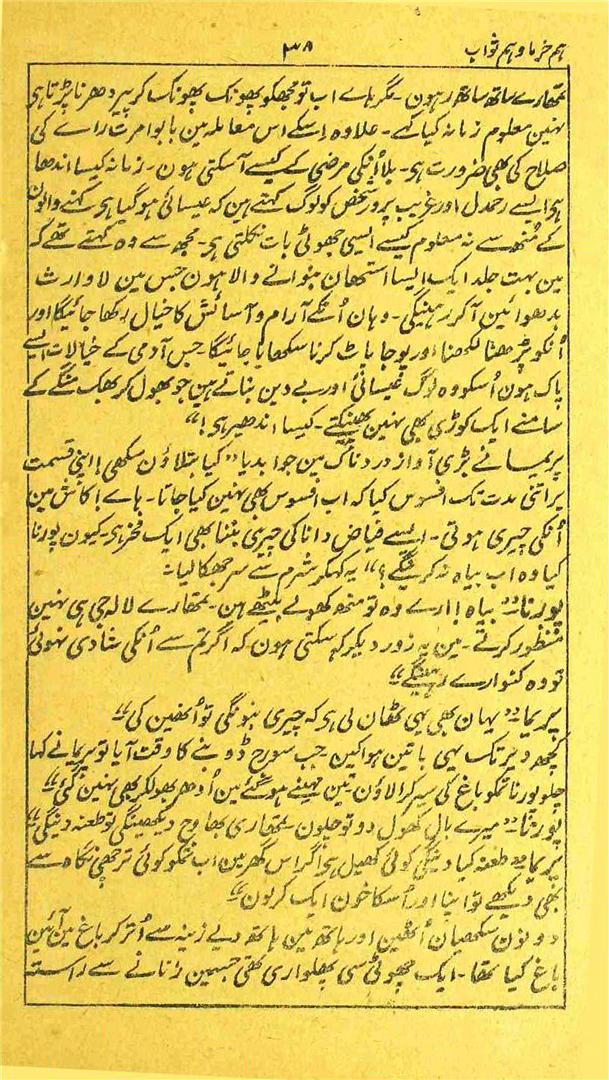 ہم خرما و ہم ثواب ۳۸
تمھارے ساتھ ساتھ رہون۔ مگر ہاے اب تو مجھکو پھونک پھونک کر پیر دھرنا پڑتا ہی
نہین معلوم زمانہ کیا کہے۔ علاوہ اِسکے اس معاملہ مین بابو امرت راے کی
صلاح کی بھی ضرورت ہی۔ بلا اُنکی مرضی کے کیسے آسکتی ہون۔ زمانہ کیسا اندھا
ہی ایسے رحمدل اور غریب پرور شخص کو لوگ کہتے ہین کہ عیسائی ہو گیا ہی کہنے والون
کے مُنھ سے نہ معلوم کیسے ایسی جھوٹی بات نکلتی ہی۔ مجھ سے وہ کہتے تھے کہ
مین بہت جلد ایک ایسا استھان بنوانے والا ہون جس مین لاوارث
بدھوائین آکر رہینگی۔ وہان اُنکے آرام و آسائش کا خیال رکھا جائیگا اور
اُنکو پڑھنا لکھنا اور پوجا پاٹ کرنا سکھایا جائیگا۔ جس آدمی کے خیالات ایسے
پاک ہون اُسکو وہ لوگ عیسائی اور بے دین بناتے ہین جو بھول کر بھی بھک منگے کے
سامنے ایک کوڑی بھی نہین پھینکتے۔ کیسا اندھیر ہی!“
پریما نے بڑی آواز دردناک مین جواب دیا ”کیا بتلاؤن سکھی! اپنی قسمت
پر اتنی مدت تک افسوس کیا کہ اب افسوس بھی نہین کیا جاتا۔ ہاے اکاش مین
اُنکی چیری ہوتی۔ ایسے فیاض داتا کی چیری بننا بھی ایک فخر ہی۔ کیون پورنا
کیا وہ اب بیاہ نہ کرینگے؟“ یہ کہکر شرم سے سر جھکا لیا۔
پورنا۔ ”بیاہ! ارے وہ تو منھ کھولے بیٹھے ہین۔ تمھارے لالہ جی ہی نہین
منظور کرتے۔ مین یہ زور دیکر کہ سکتی ہون کہ اگر تم سے اُنکی شادی نہوئی
تو وہ کنوارے رہینگے“
پریما۔ ”یہان بھی یہی ٹھان لی ہی کہ چیری بنونگی تو اُنھین کی“
کچھ دیر تک یہی باتین ہوا کین۔ جب سورج ڈوبنے کا وقت آیا تو پریما نے کہا
چلو پورنا تمکو باغ کی سیر کرا لاؤن تین مہینے ہو گئے مین اُدھر بھولکر بھی نہین گئی“
پورنا۔ ”میرے بال کھول دو تو چلون۔ تمھاری بھاوج دیکھینگی تو طعنہ دینگی“
پریما۔ ”طعنہ کیا دینگی کوئی کھیل ہی اگر اس گھر مین اب تمکو کوئی ترچھی نگاہ سے
بھی دیکھے تو اپنا اور اُسکا خون ایک کرون“
دونون سکھیان اُٹھین اور ہاتھ مین ہاتھ دیے زینہ سے اُتر کر باغ مین آئین
باغ کیا تھا۔ ایک چھوٹی سی پھلواری تھی جسمین زنانے سے راستہ